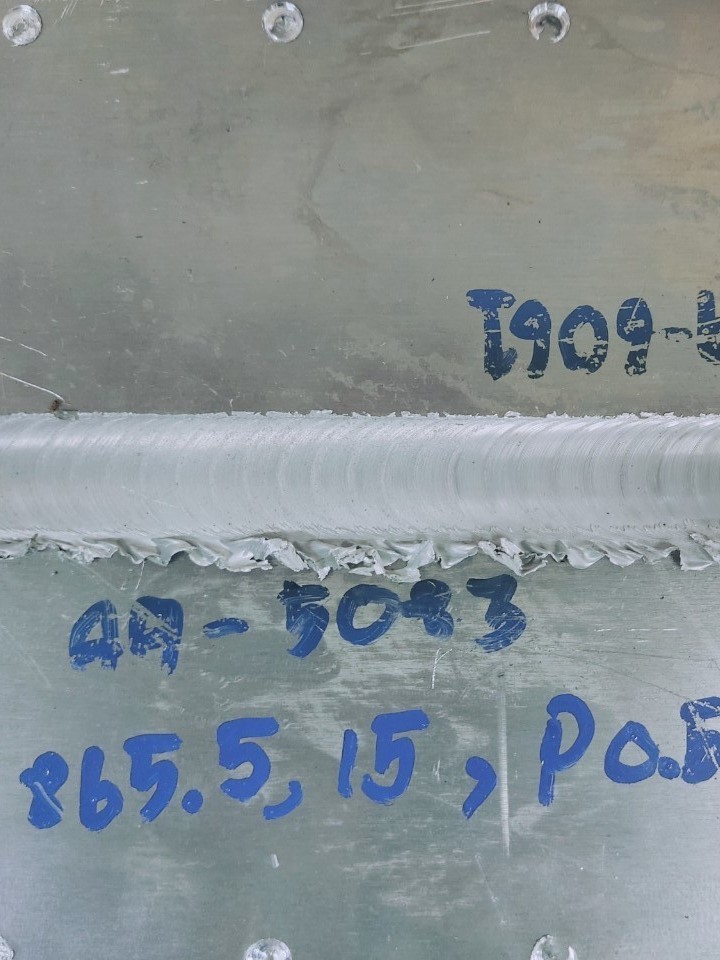 T909-
AA-5083
865.5, 15, P0.5